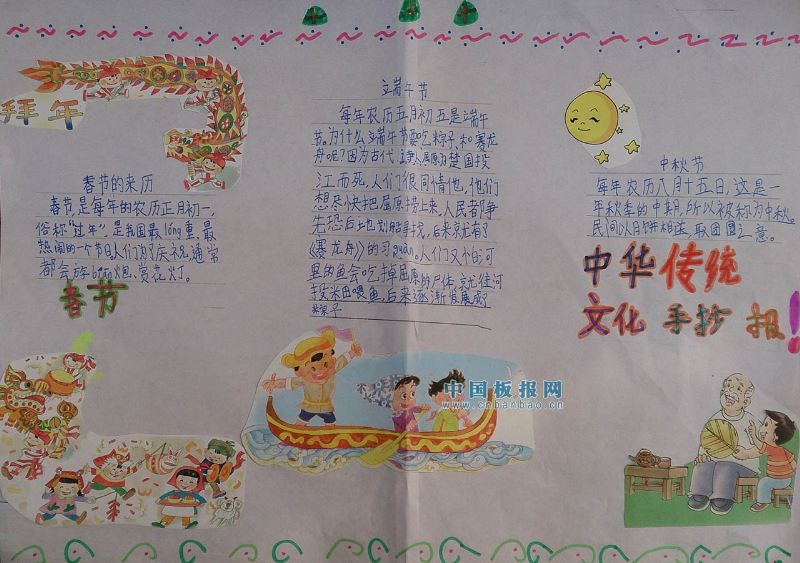 拜年
春节的来历
春节,是每年的农历正月初一,
俗称“过年”,是我国最lóng重、最
热闹的一个节日人们为了庆祝,通常
都会放biān炮、赏花灯。
春节
立端午节
每年农历五月初五是立端午
节。为什么立端午节要吃粽子和赛龙
舟呢?因为古代诗人屈原为楚国投
江而死,人们很同情他,他们
想尽快把屈原捞上来,人民都争
先恐后地划船寻找,后来就有了
《赛龙舟》的习guàn。人们又怕河
里的鱼会吃掉屈原的尸体,就往河
投米团喂鱼,后来逐渐发展成
粽子
中秋节
每年农历八月十五日,这是一
年秋季的中期,所以被称为中秋。
民间以月饼相送,取团圆之意。
中华传统
文化手抄报!
中国板报网
www.cnbanbao.cn